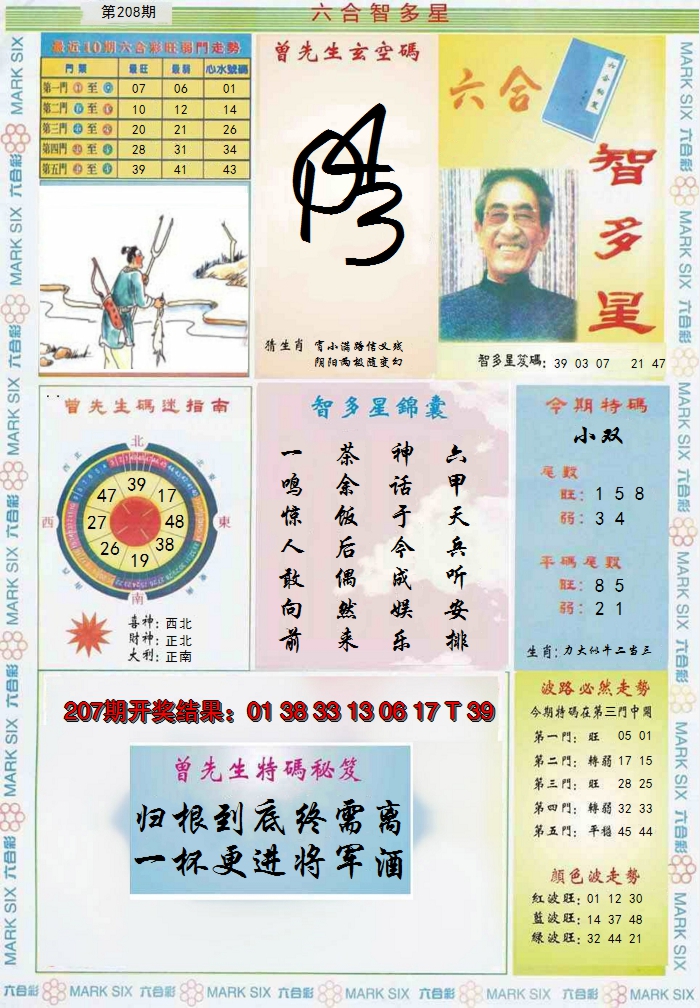 第208期
六合智多星
最近10期六合彩旺弱門走勢
門類 最旺 最弱 心水號碼
第一門 至 07 06 01
第二門 至 10 12 14
第三門 至 20 21 26
第四門 至 28 31 34
第五門 至 39 41 43
曾先生玄空碼
猜生肖 宵小满路信义残
阴阳两极随变幻
六合
智多星
智多星笈碼: 39 03 07 21 47
曾先生碼迷指南
北
西
東
南
39
17
48
38
19
26
27
47
喜神: 西北
財神: 正北
大利: 正南
智多星錦囊
六甲天兵听安排
神话于今成娱乐
茶余饭后偶然来
一鸣惊人敢向前
今期特碼
小双
尾數
旺: 1 5 8
弱: 3 4
平碼尾數
旺: 8 5
弱: 2 1
生肖: 力大似牛二当三
207期开奖结果: 01 38 33 13 06 17 T 39
曾先生特碼秘笈
归根到底终需离
一杯更进将军酒
波路必然走勢
今期特碼在第三門中開
第一門: 旺 05 01
第二門: 轉弱 17 15
第三門: 旺 28 25
第四門: 轉弱 32 33
第五門: 平穩 45 44
顏色波走勢
紅波旺: 01 12 30
藍波旺: 14 37 48
綠波旺: 32 44 21
MARK SIX 六合彩